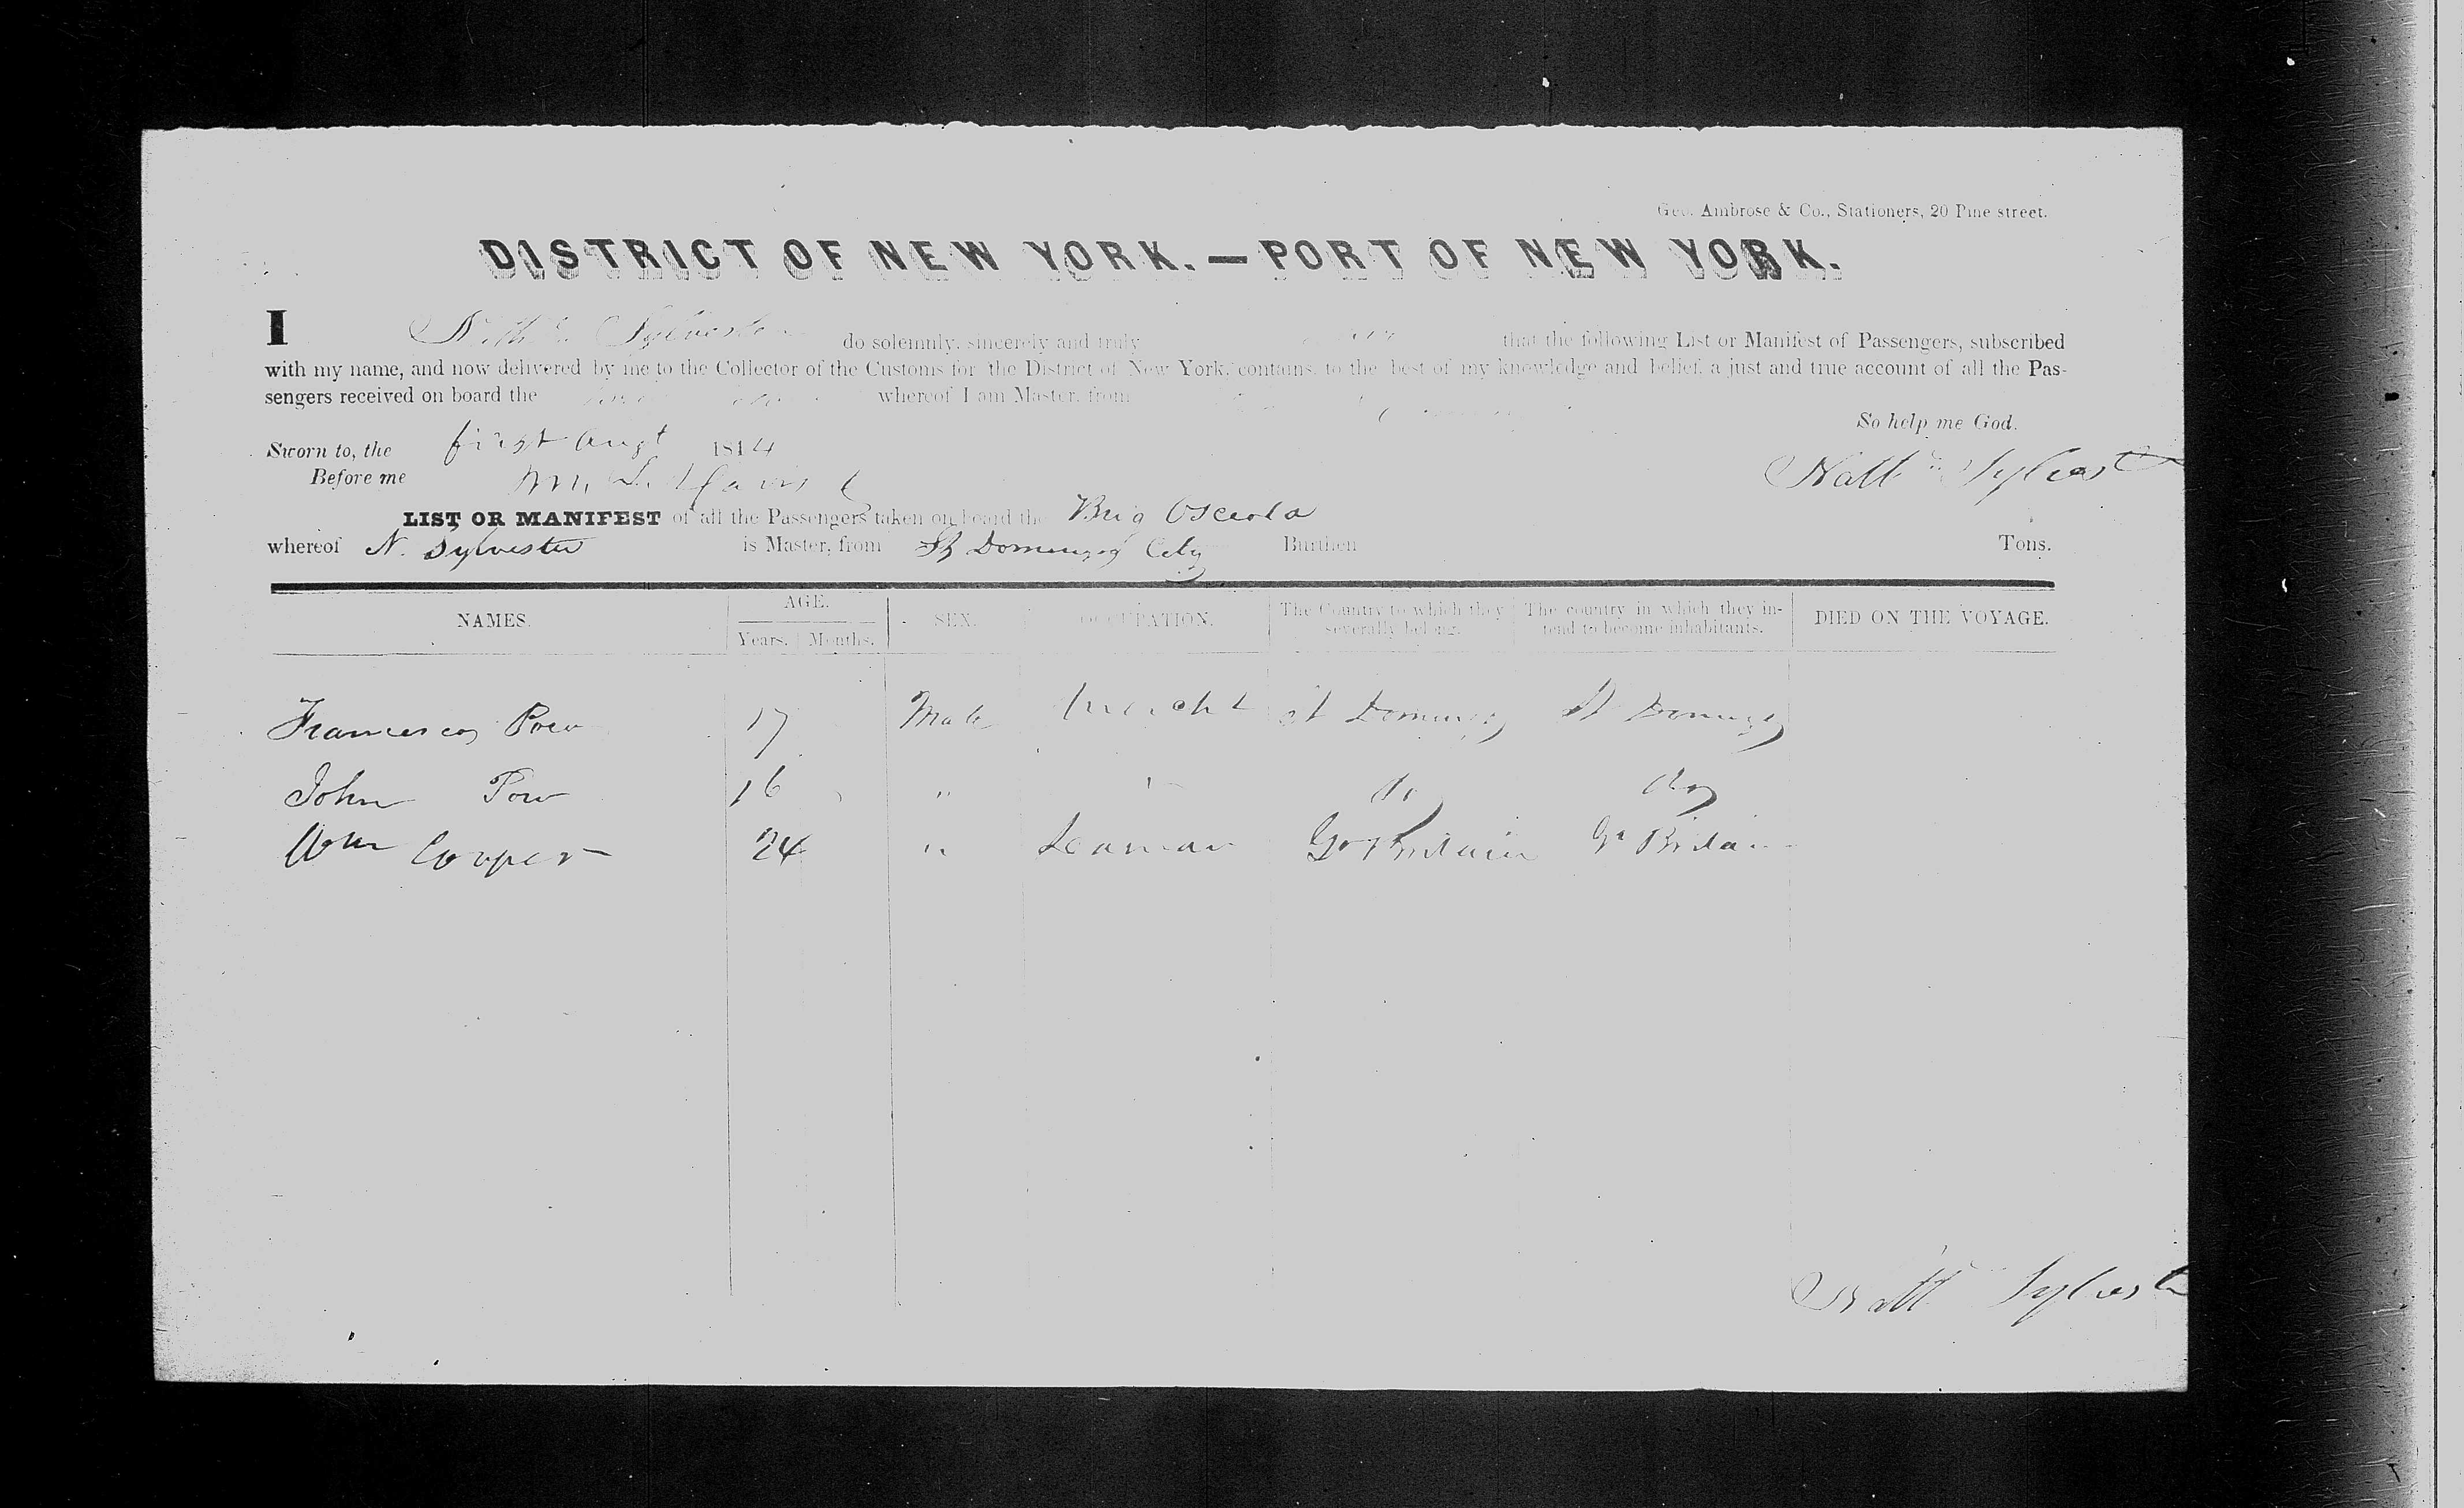 Geo. Ambrose & Co., Stationers, 20 Pine street.
DISTRICT OF NEW YORK.—PORT OF NEW YORK.
I Nath Sylvester do solemnly, sincerely and truly that the following List or Manifest of Passengers, subscribed
with my name, and now delivered by me to the Collector of the Customs for the District of New York, contains, to the best of my knowledge and belief, a just and true account of all the Pas-
sengers received on board the whereof I am Master, from
So help me God.
Sworn to, the first Augt 1844
Before me
LIST OR MANIFEST of all the Passengers taken on board the Brig Osceola
whereof N. Sylvester is Master, from St Domingo City Burthen Tons.
NAMES. AGE. SEX. OCCUPATION. The Country to which they severally belong. The country in which they intend to become inhabitants. DIED ON THE VOYAGE.
Years. Months.
Francisco Pow 17 Male Mercht St Domingo St Domingo
John Pow 16 " " do do
Wm Cooper 24 " Seaman Gr Britain Gr Britain
Natl Sylvester